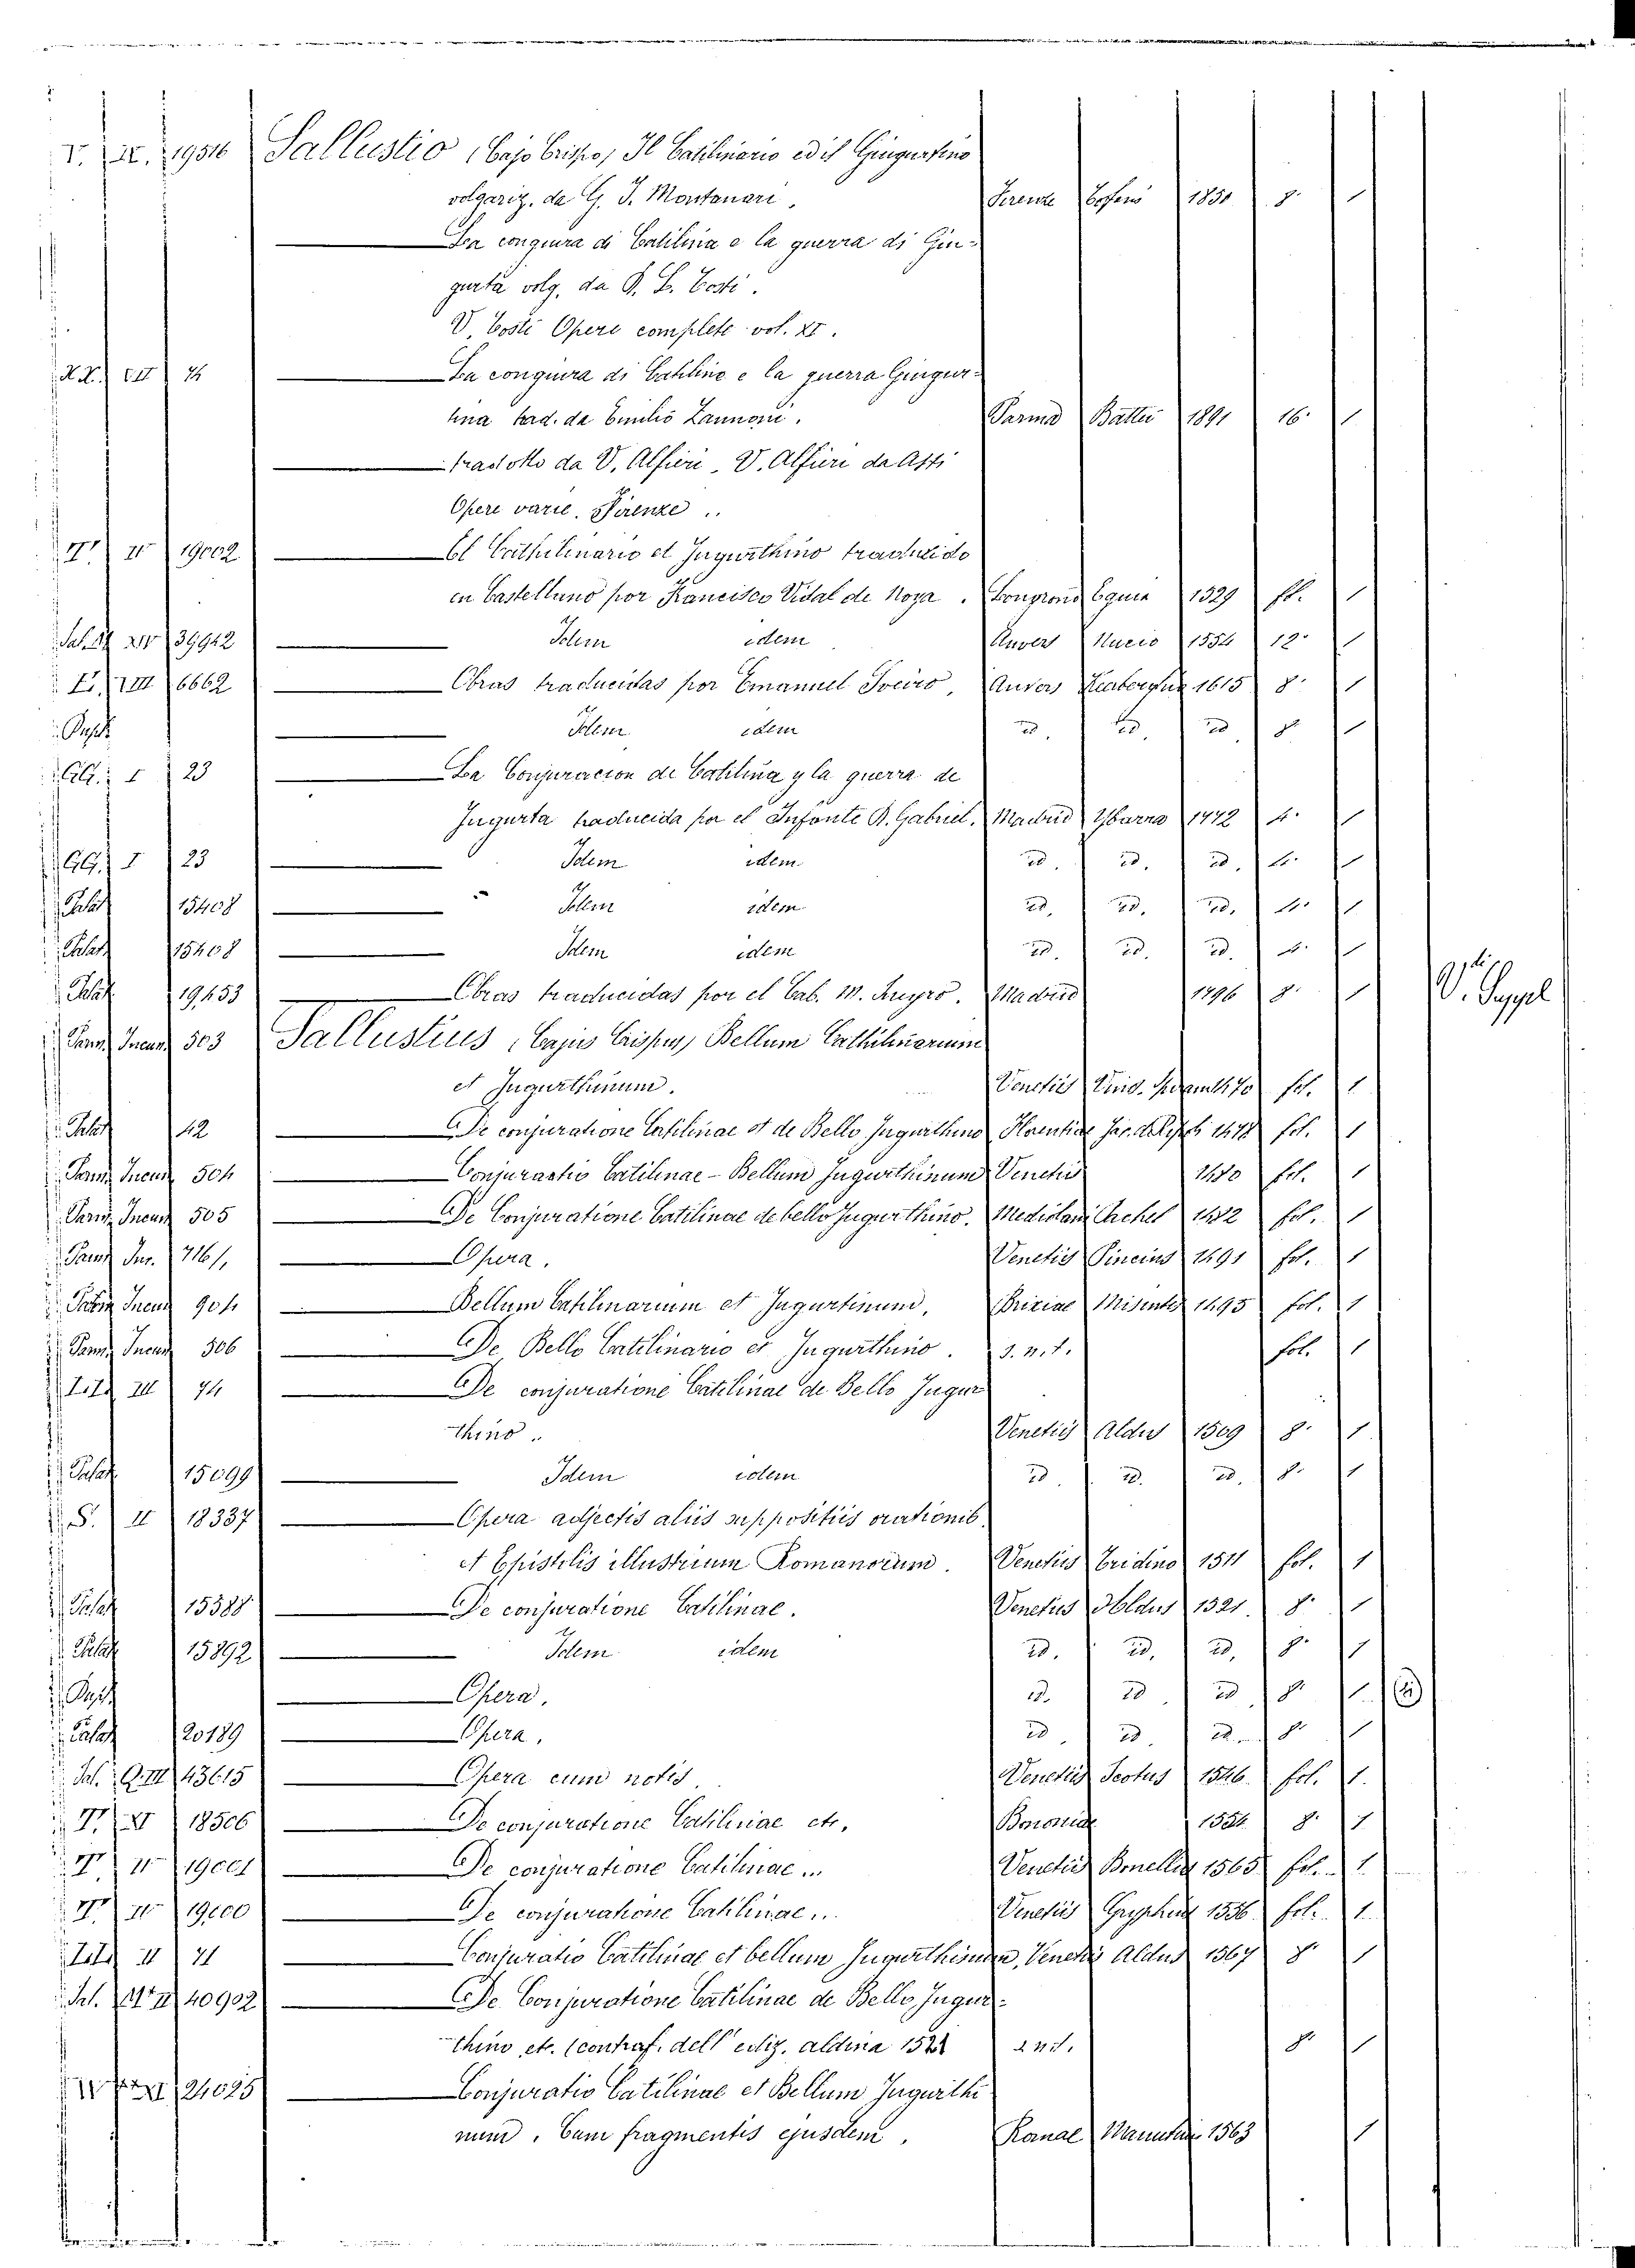 V. IX. 19516 Sallustio (Cajo Crispo) Il Catilinario ed il Giugurtino
volgariz. da G. I. Montanari. Firenze 1851 8° 1
La congiura di Catilina e la guerra di Giu-
gurta volg. da G. B. Costi.
V. Costi Opere complete vol. II.
74 La congiura di Catilina e la guerra Giugur-
tina trad. da Emilio Zannoni. Parma Battei 1891 16° 1
tradotto da V. Alfieri. V. Alfieri da Asti
Opere varie. Firenze ..
19002 El Cathilinario et Jugurthino traducido
en Castellano por Francisco Vidal de Noya. Logrono Eguia 1529 fol. 1
39942 Idem idem Anvers Nucio 1554 12° 1
VIII 6662 Obras traducidas por Emanuel Soeiro, Anvers 1615 8° 1
Idem idem id. id. id. 8° 1
GG. I 23 La Conjuracion de Catilina y la guerra de
Jugurta traducida por el Infante D. Gabriel. Madrid Ybarra 1772 4° 1
GG. I 23 Idem idem id. id. id. 4° 1
Palat. 15408 Idem idem id. id. id. 4° 1
Palat. 15408 Idem idem id. id. id. 4° 1
Palat. 19453 Obras traducidas por el Cab. M. Madrid 1796 8° 1 V. Suppl
Parm. Incun. 503 Sallustius (Cajus Crispus) Bellum Cathilinarium
et Jugurthinum. Venetiis Vind. 1470 fol. 1
Palat. 42 De conjuratione Catilinae et de Bello Jugurthino Florentiae 1478 fol. 1
Parm. Incun. 504 Conjurastio Catilinae - Bellum Jugurthinum Venetiis 1480 fol. 1
Parm. Incun. 505 De Conjuratione Catilinae de bello Jugurthino. Mediolani 1482 fol. 1
Parm. Inc. 716/1 Opera. Venetiis Pincius 1491 fol. 1
Incun. 904 Bellum Catilinarium et Jugurtinum, Brixiae Misenta 1495 fol. 1
Parm. Incun. 506 De Bello Catilinario et Jugurthino. s. n. t. fol. 1
III 74 De conjuratione Catilinae de Bello Jugur
thino. Venetiis Aldus 1509 8° 1
Palat. 15099 Idem idem id. id. id. 8° 1
S. II 18337 Opera adjectis aliis suppositiis orationib.
et Epistolis illustrium Romanorum. Venetiis Tridino 1511 fol. 1
Palat. 15388 De conjuratione Catilinae. Venetiis Aldus 1521 8° 1
Palat. 15892 Idem idem id. id. id. 8° 1
Opera. id. id. id. 8° 1
Palat. 20189 Opera. id. id. id. 8° 1
43615 Opera cum notis. Venetiis Scotus 1546 fol. 1
18506 De conjuratione Catilinae etc. Bononiae 8° 1
19001 De conjuratione Catilinae... Venetiis Bonellis 1565 fol. 1
19000 De conjuratione Catilinae... Venetiis Gryphius 1556 fol. 1
71 Conjuratio Catilinae et bellum Jugurthinum, Venetiis Aldus 1567 8° 1
40902 De Conjuratione Catilinae de Bello Jugur-
thino etc. (contraf. dell'ediz. aldina 1521 s.n.t. 8° 1
21025 Conjuratio Catilinae et Bellum Jugurthi
num. Cum fragmentis ejusdem. Romae Manutius 1563 1